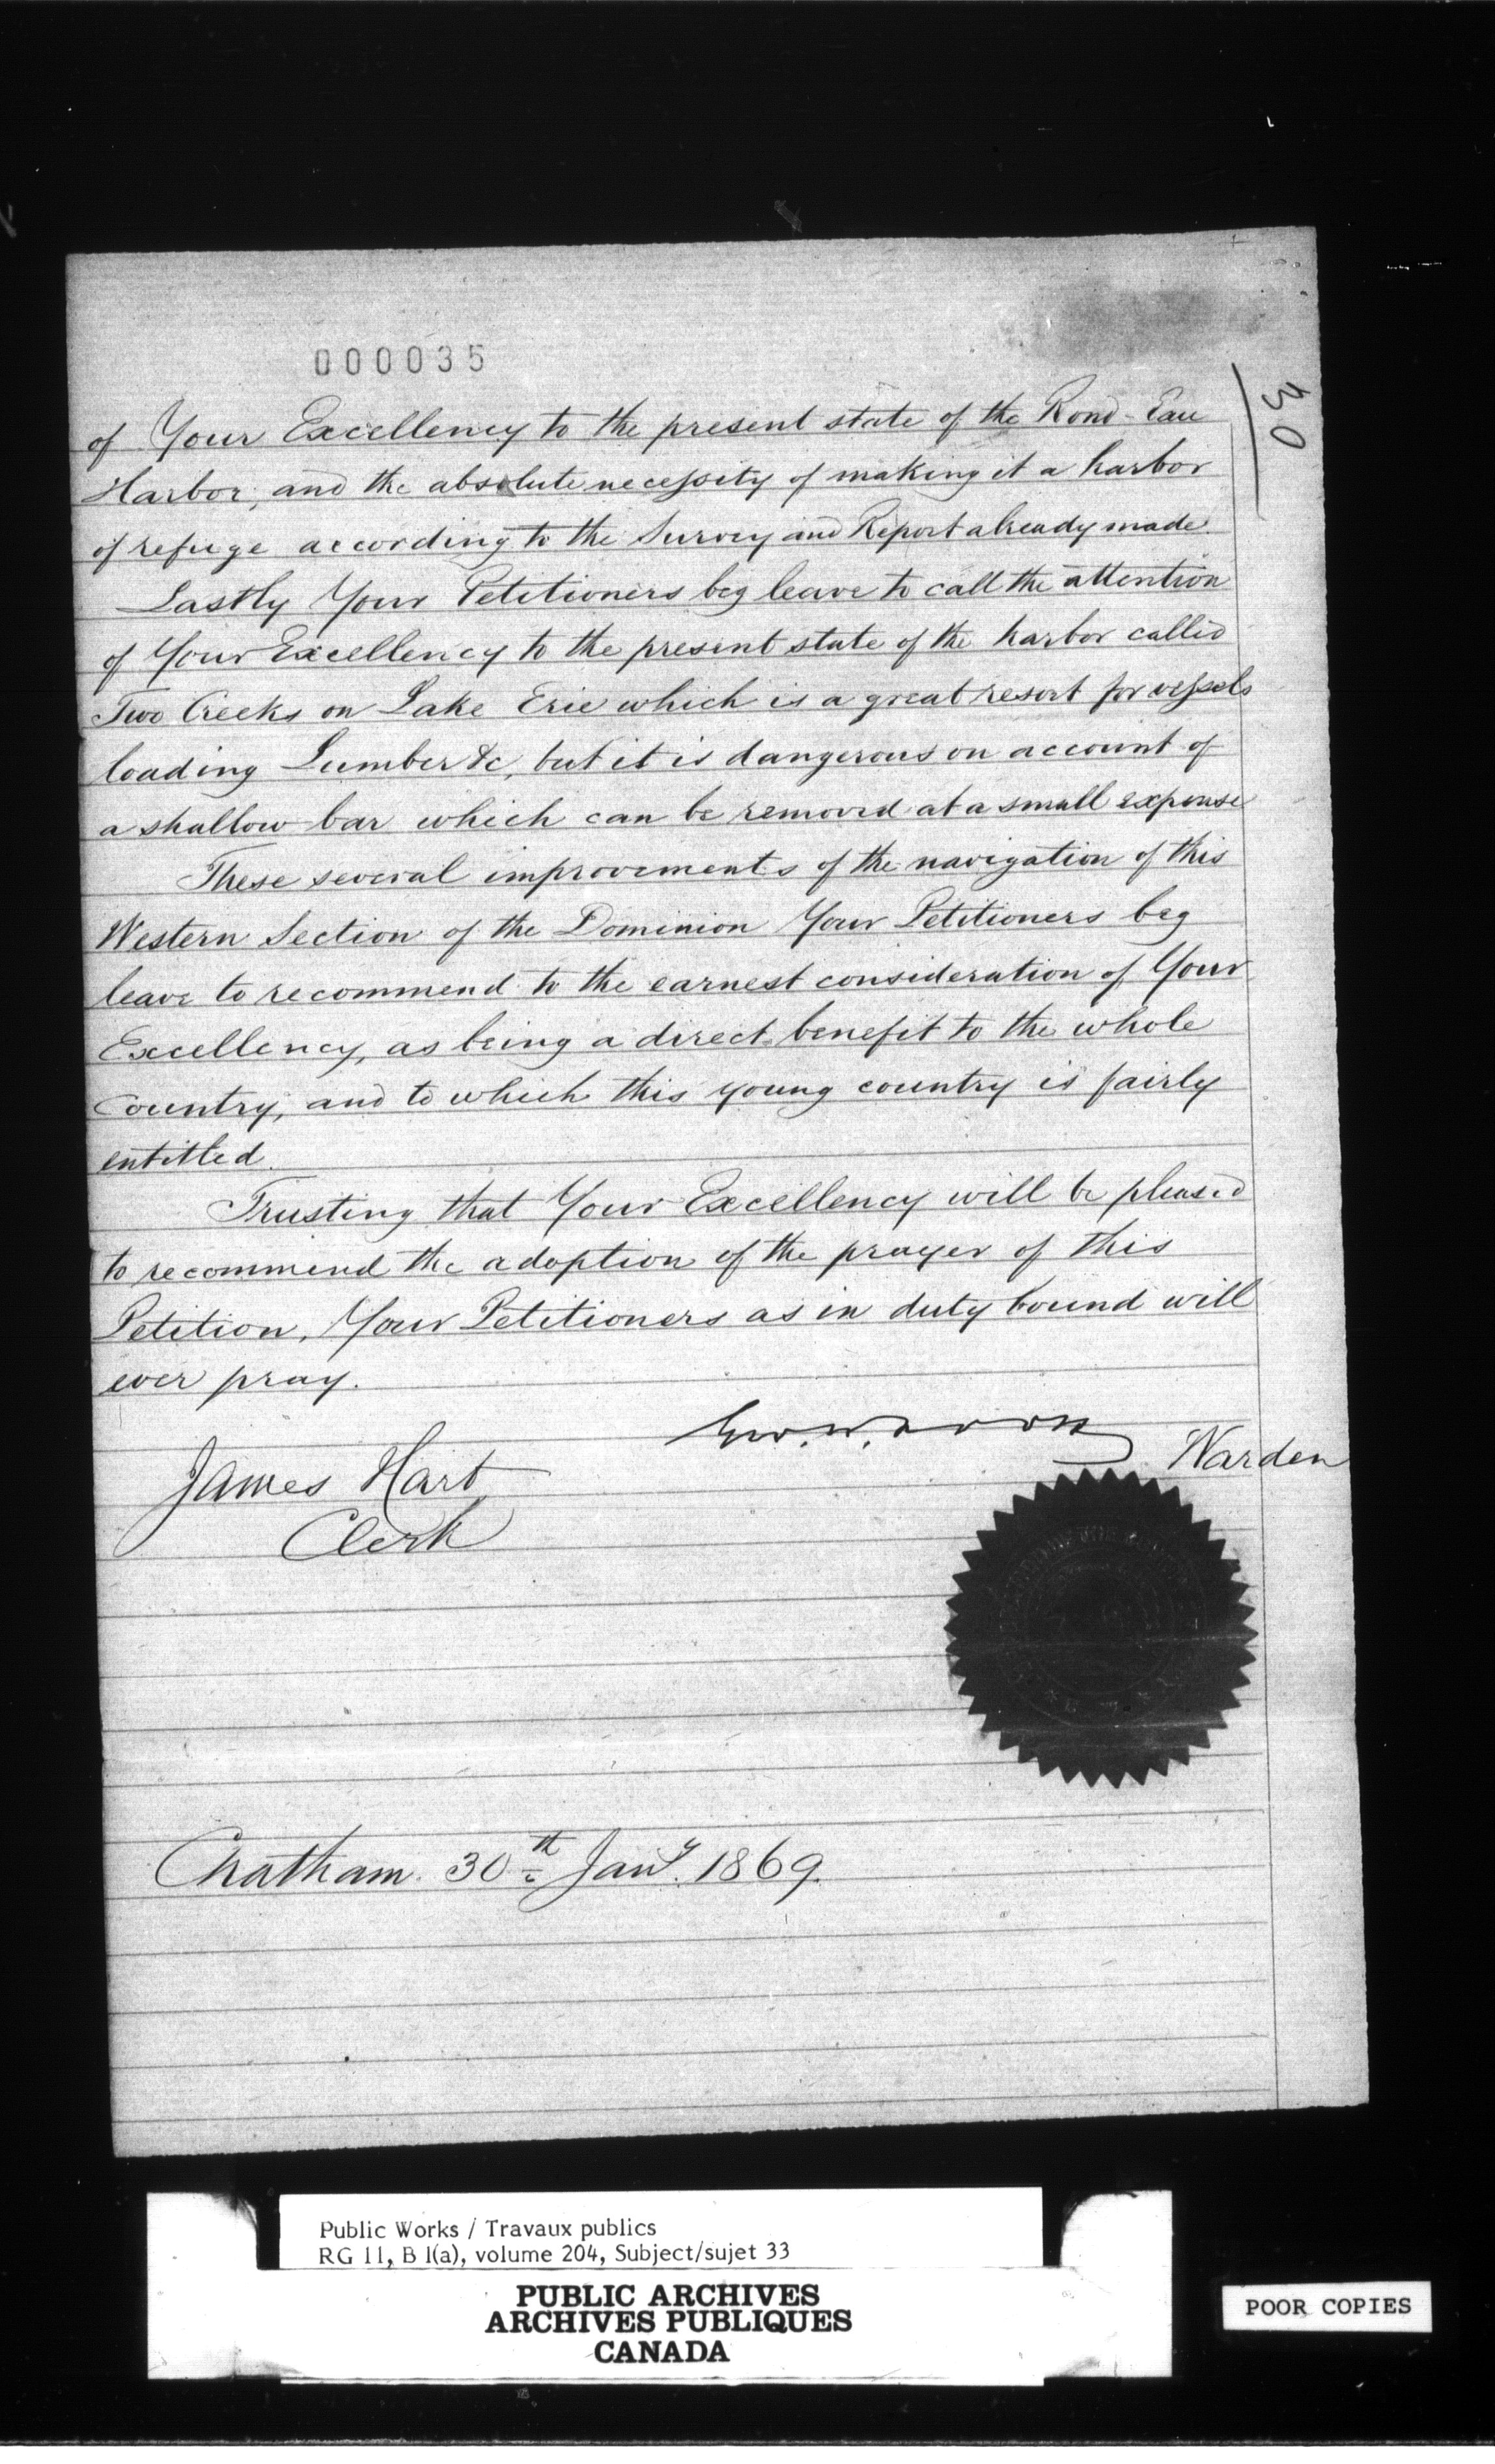 000035
30
of Your Excellency to the present state of the Rond-Eau
Harbor, and the absolute necessity of making it a harbor
of refuge according to the Survey and Report already made.
Lastly Your Petitioners beg leave to call the attention
of Your Excellency to the present state of the harbor called
Two Creeks on Lake Erie which is a great resort for vessels
loading Lumber &c, but it is dangerous on account of
a shallow bar which can be removed at a small expense
These several improvements of the navigation of this
Western Section of the Dominion Your Petitioners beg
leave to recommend to the earnest consideration of Your
Excellency, as being a direct benefit to the whole
Country, and to which this young country is fairly
entitled.
Trusting that Your Excellency will be pleased
to recommend the adoption of the prayer of this
Petition, Your Petitioners as in duty bound will
ever pray.
Warden
James Hart
Clerk
Chatham. 30th Jany. 1869.
Public Works / Travaux publics
RG 11, B 1(a), volume 204, Subject/sujet 33
PUBLIC ARCHIVES
ARCHIVES PUBLIQUES
CANADA
POOR COPIES